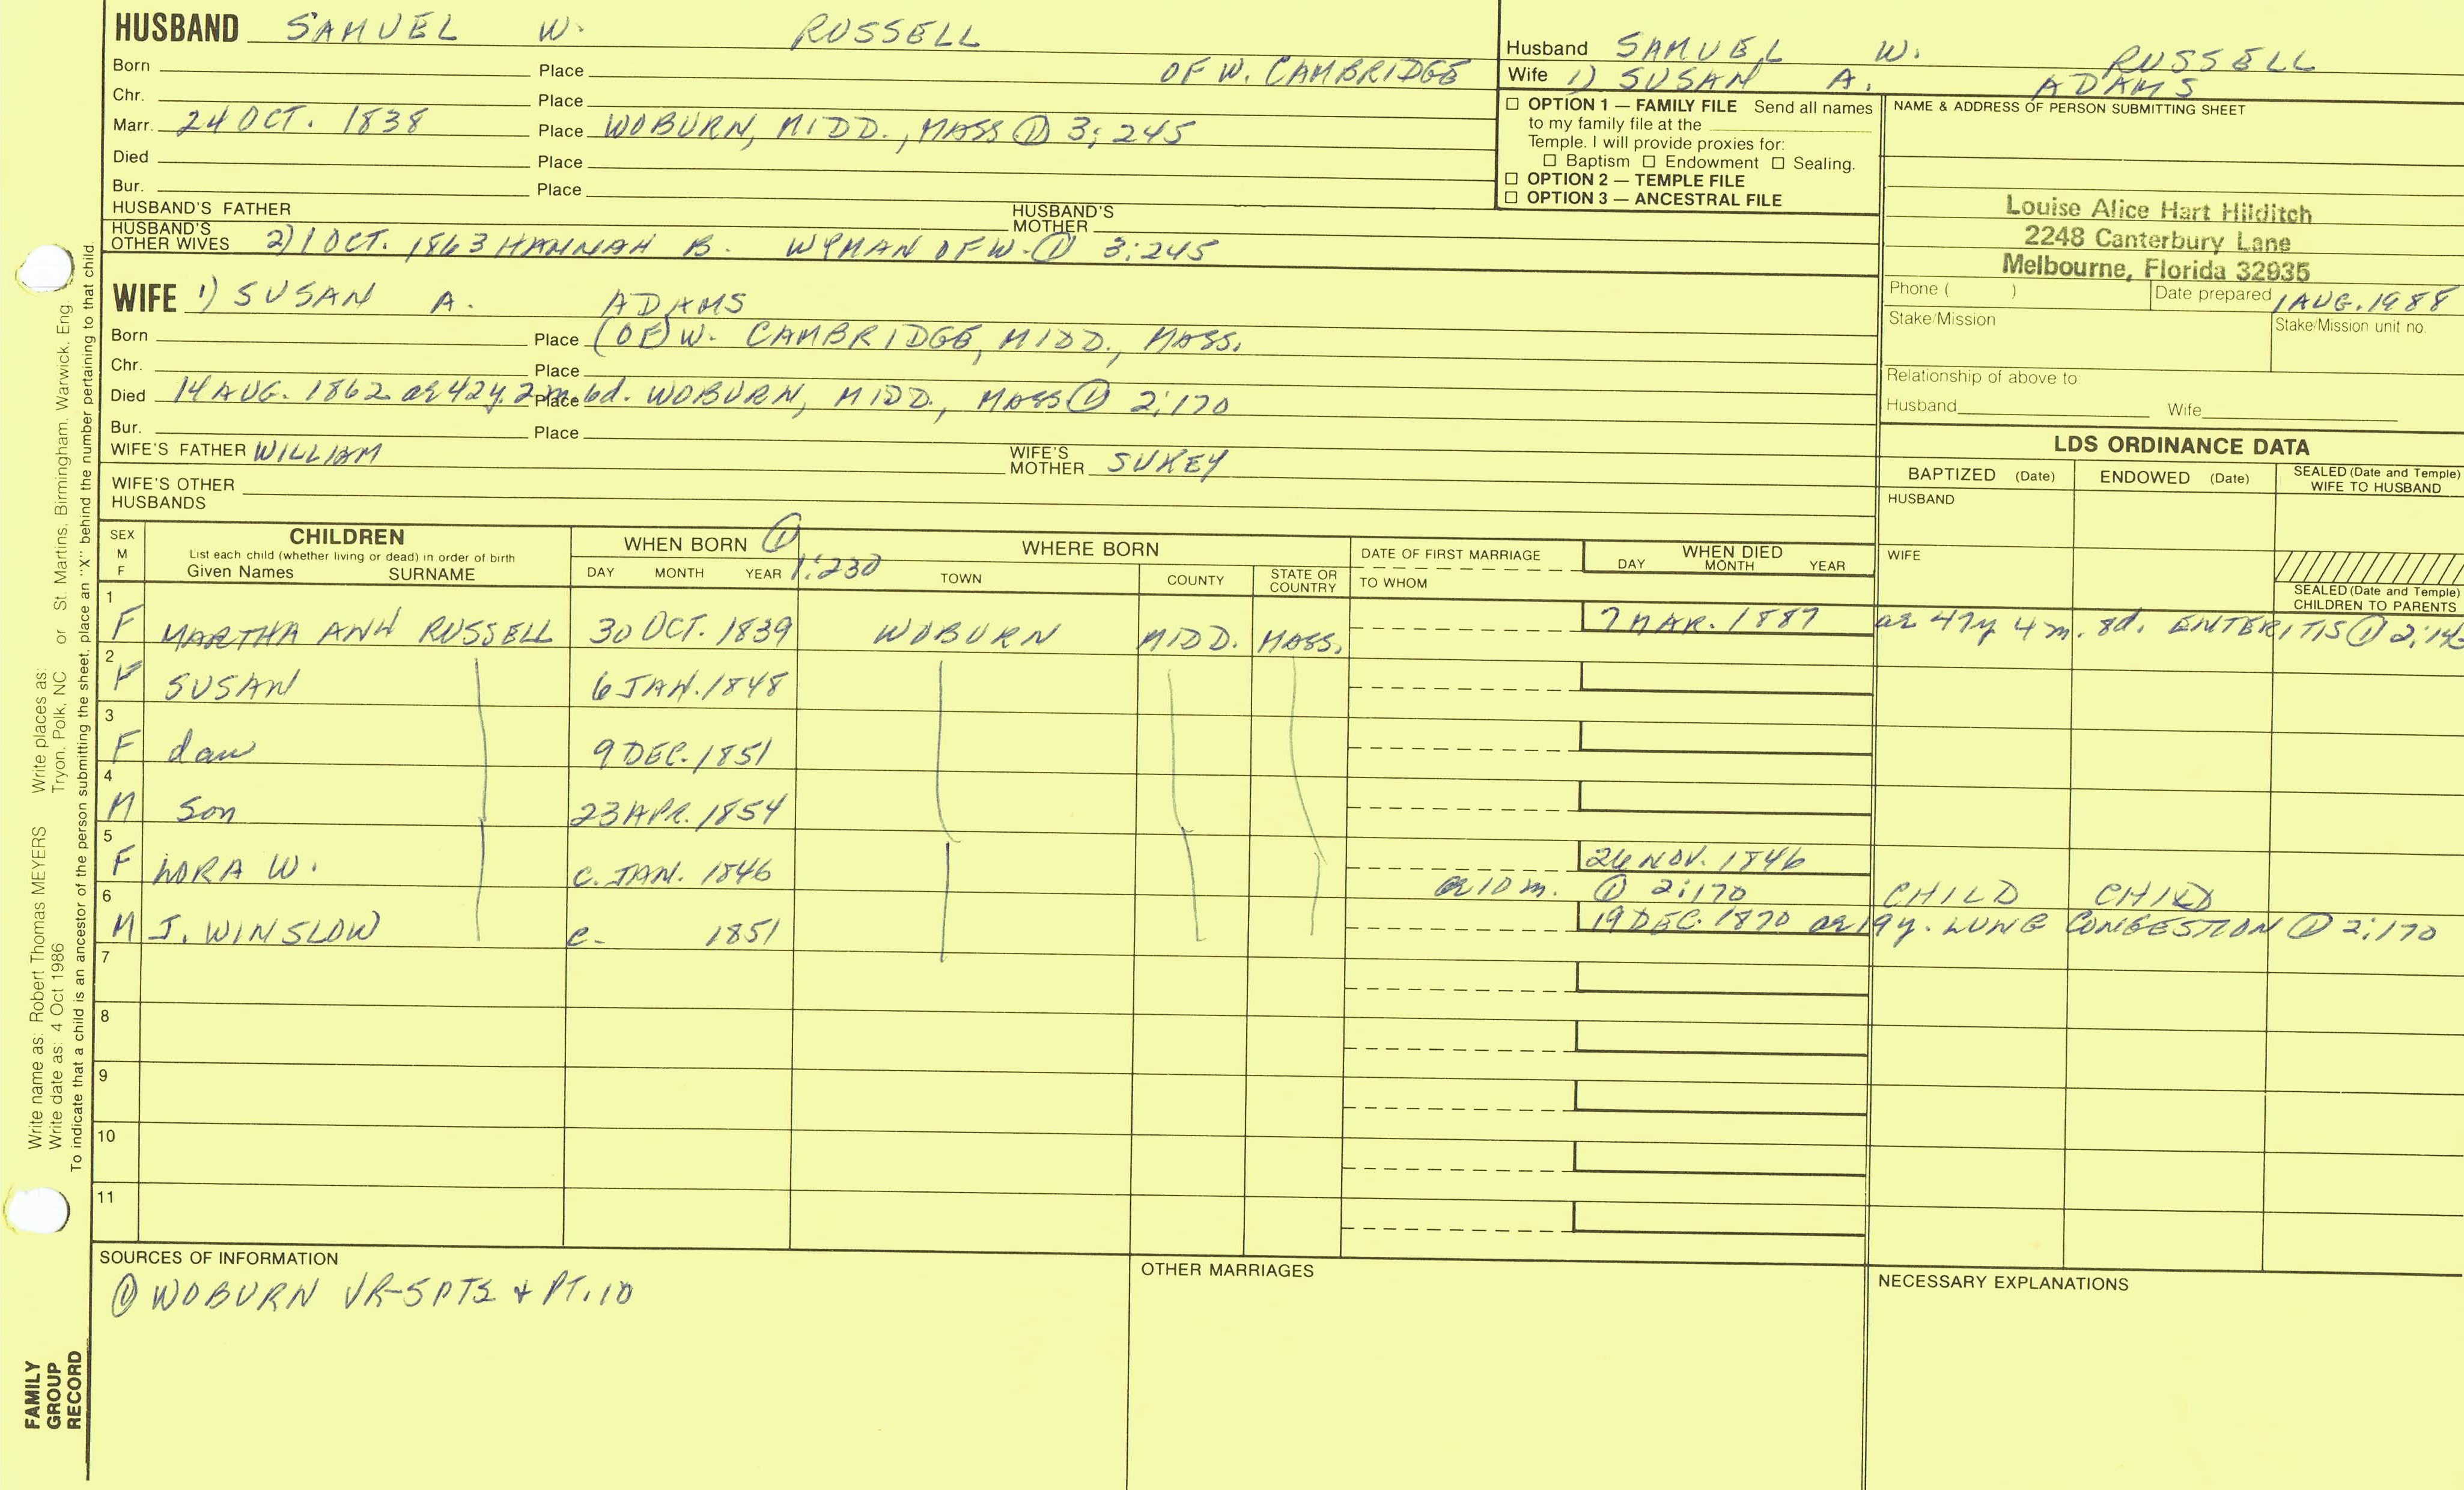 HUSBAND SAMUEL W. RUSSELL
Born Place OF W. CAMBRIDGE
Chr. Place
Marr. 24 OCT. 1838 Place WOBURN, MIDD., MASS ① 3:245
Died Place
Bur. Place
HUSBAND'S FATHER HUSBAND'S MOTHER
HUSBAND'S OTHER WIVES 2) 1 OCT. 1863 HANNAH B. WYMAN OF W. ① 3:245
WIFE 1) SUSAN A. ADAMS
Born Place (OF) W. CAMBRIDGE, MIDD., MASS.
Chr. Place
Died 14 AUG. 1862 ae 42y. 2m. 6d. Place WOBURN, MIDD., MASS ① 2:170
Bur. Place
WIFE'S FATHER WILLIAM WIFE'S MOTHER SUKEY
WIFE'S OTHER HUSBANDS
Husband SAMUEL W. RUSSELL
Wife 1) SUSAN A. ADAMS
☐ OPTION 1 — FAMILY FILE Send all names
to my family file at the
Temple. I will provide proxies for:
☐ Baptism ☐ Endowment ☐ Sealing.
☐ OPTION 2 — TEMPLE FILE
☐ OPTION 3 — ANCESTRAL FILE
NAME & ADDRESS OF PERSON SUBMITTING SHEET
Louise Alice Hart Hilditch
2248 Canterbury Lane
Melbourne, Florida 32935
Phone ( ) Date prepared 1 AUG. 1988
Stake/Mission Stake/Mission unit no.
Relationship of above to:
Husband Wife
LDS ORDINANCE DATA
BAPTIZED (Date) ENDOWED (Date) SEALED (Date and Temple) WIFE TO HUSBAND
HUSBAND
WIFE
SEALED (Date and Temple) CHILDREN TO PARENTS
SEX M F CHILDREN WHEN BORN ① 1:230 WHERE BORN DATE OF FIRST MARRIAGE WHEN DIED
List each child (whether living or dead) in order of birth
Given Names SURNAME DAY MONTH YEAR TOWN COUNTY STATE OR COUNTRY TO WHOM DAY MONTH YEAR
1 F MARTHA ANN RUSSELL 30 OCT. 1839 WOBURN MIDD. MASS. 7 MAR. 1887 ae 47y 4m. 8d. ENTERITIS ①
2 F SUSAN 6 JAN. 1848
3 F dau 9 DEC. 1851
4 M Son 23 APR. 1854
5 F LORA W. c. JAN. 1846 26 NOV. 1846
ae 10 m. ① 2:170 CHILD CHILD
6 M J. WINSLOW c. 1851 19 DEC. 1870 ae 19y. LUNG CONGESTION ① 2:170
7
8
9
10
11
SOURCES OF INFORMATION
① WOBURN VR-5 PTS + PT. 10
OTHER MARRIAGES
NECESSARY EXPLANATIONS
Write name as: Robert Thomas MEYERS Write places as: Tryon, Polk, NC or St. Martins, Birmingham, Warwick, Eng.
Write date as: 4 Oct 1986
To indicate that a child is an ancestor of the person submitting the sheet, place an "X" behind the number pertaining to that child.
FAMILY
GROUP
RECORD